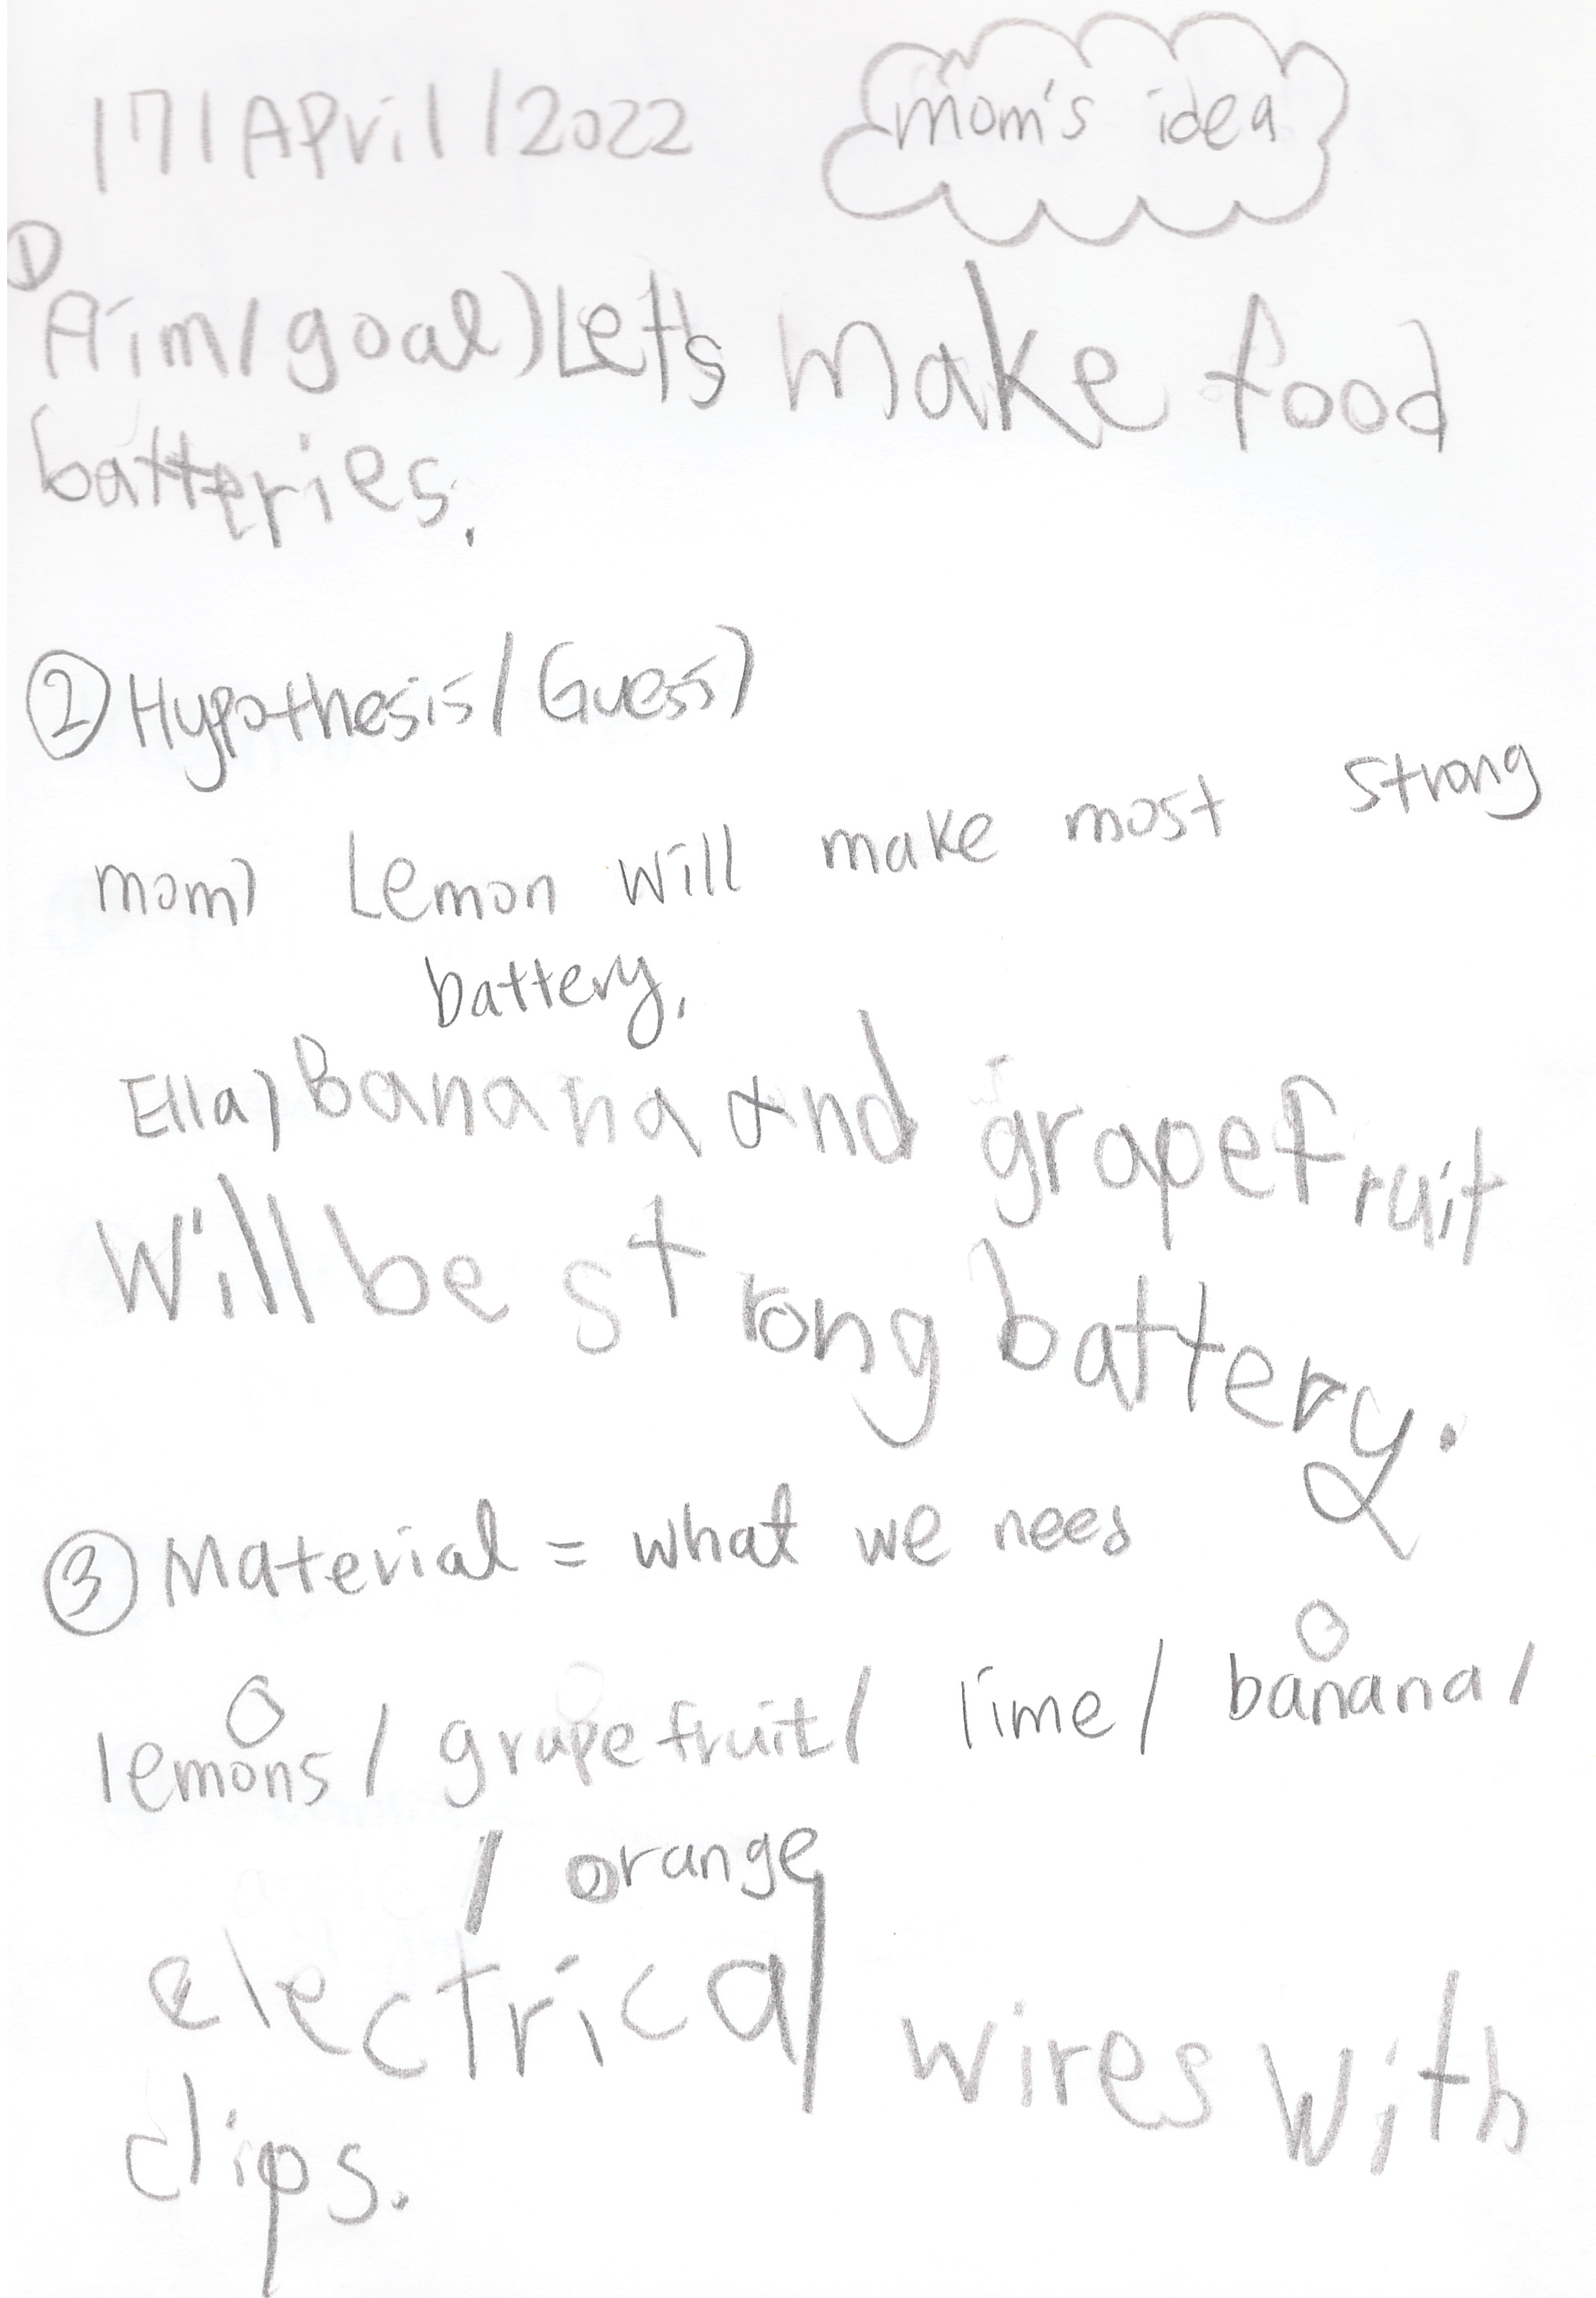 17/April/2022
mom's idea
①
Aim/goal) Let's make food
batteries.
② Hypothesis/Guess)
mom) Lemon will make most strong
battery.
Ella) Banana and grapefruit
Will be strong battery.
③ Material = what we need
lemons / grapefruit / lime / banana /
/ orange
electrical wires with
clips.